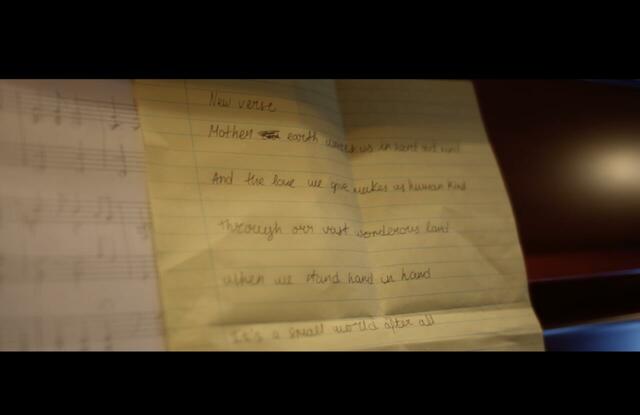 New verse
Mother earth unites us in heart and mind
And the love we give makes us human kind
through our vast wonderous land
when we stand hand in hand
It's a small world after all